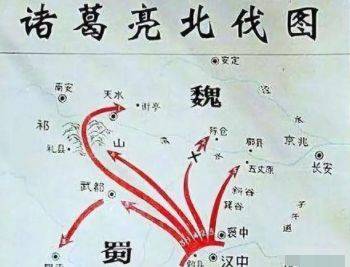 诸葛亮北伐图
安定
南安
天水
街亭
魏
泾
水
祁
山
陈仓
郿县
京兆
渭
水
礼县
五丈原
长安
斜谷
箕谷
子
午
道
武都
褒中
蜀
汉中
勉县